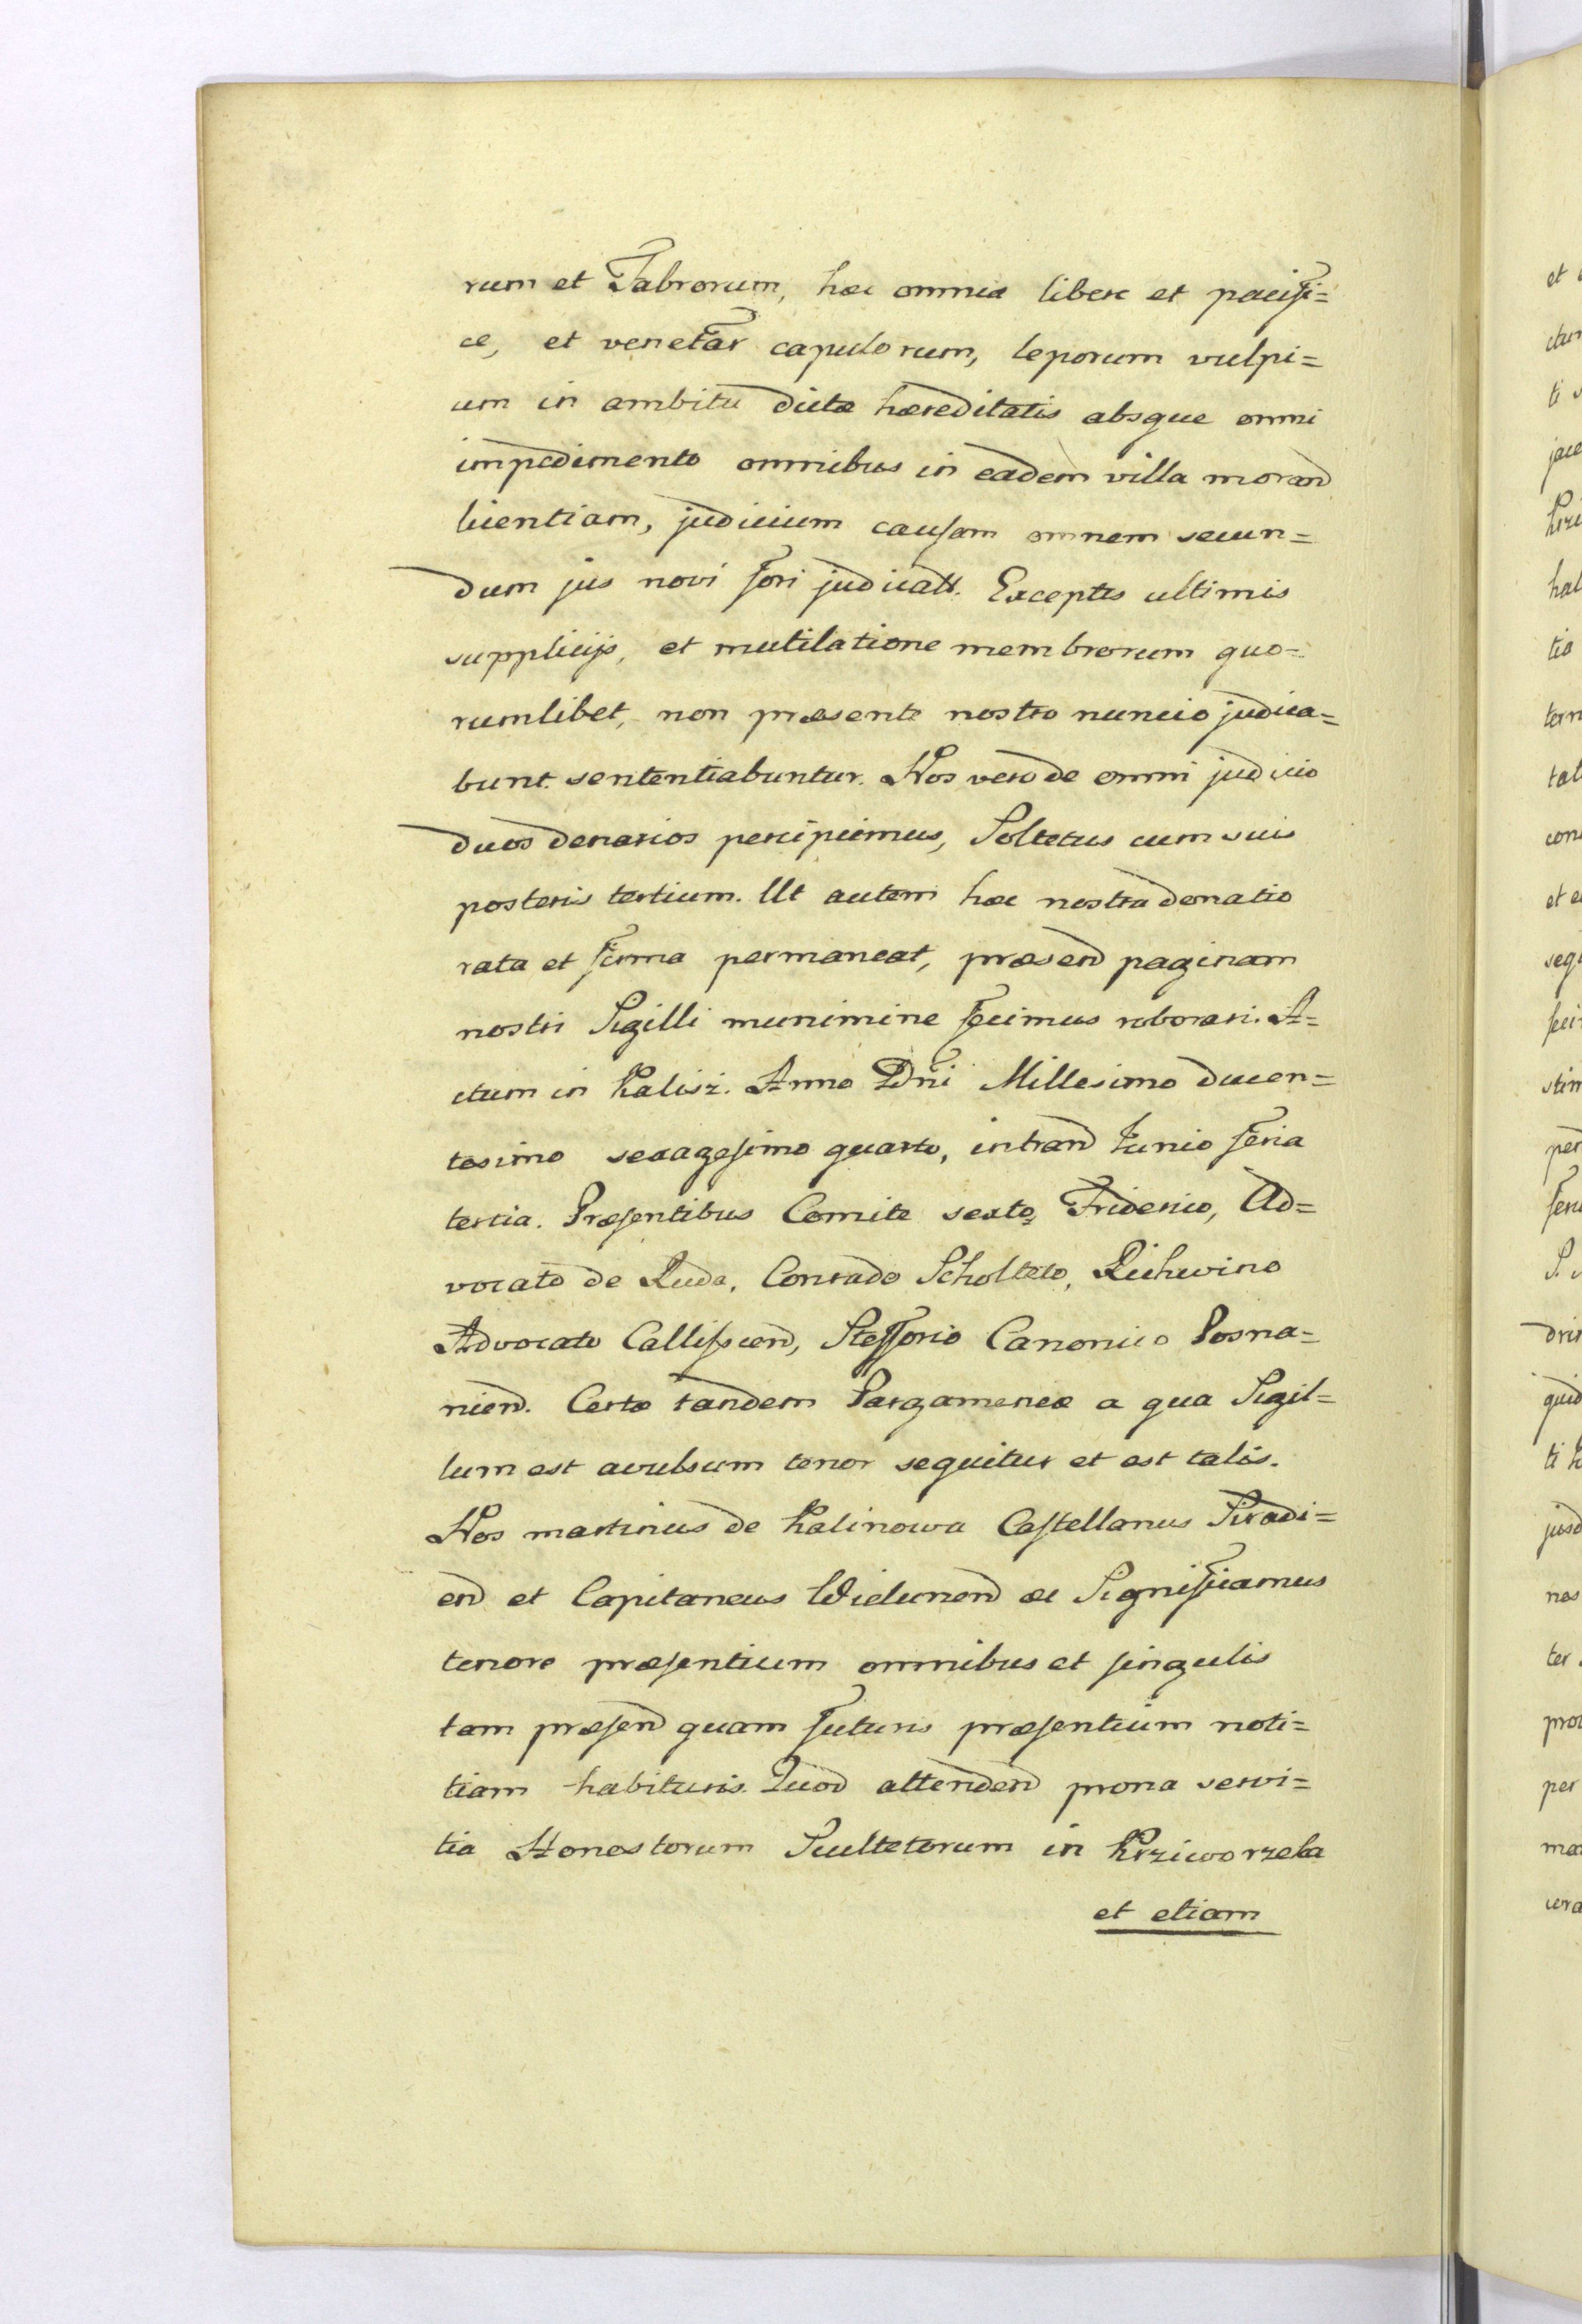 rum et Fabrorum, hæc omnia libere et pacifi=
ce, et venetar capulorum, leporum vulpi=
um in ambitu dictæ hæreditatis absque omni
impedimento omnibus in eadem villa morand
licentiam, judicium causam omnem secun=
dum jus novi fori judicatt. Exceptis ultimis
supplicijs, et mutilatione membrorum quo=
rumlibet, non præsente nostro nuncio judica=
bunt. sententiabuntur. Nos vero de omni judicio
duos denarios percipiemus, Soltetus cum suis
posteris tertium. Ut autem hæc nostra donatio
rata et firma permaneat, præsend paginam
nostri Sigilli munimine fecimus roborari. A=
ctum in Kalisz. Anno Dni Millesimo ducen=
tesimo sexagesimo quarto, intrand Junio feria
tertia. Præsentibus Comite sexto, Friderico, Ad=
vocato de Ruda, Conrado Scholteto, Richwino
Advocato Callissiend, Stefforio Canonico Posna=
niend. Certæ tandem Pargameneæ a qua Sigil=
lum est avulsum tenor sequitur et est talis.
Nos martinus de Kalinowa Castellanus Siradi=
end et Capitaneus Wielunend &c Significamus
tenore præsentium omnibus et singulis
tam præsend quam futuris præsentium noti=
tiam habituris. Quod attendend prona servi=
tia Honestorum Scultetorum in Krziworzeka
et etiam